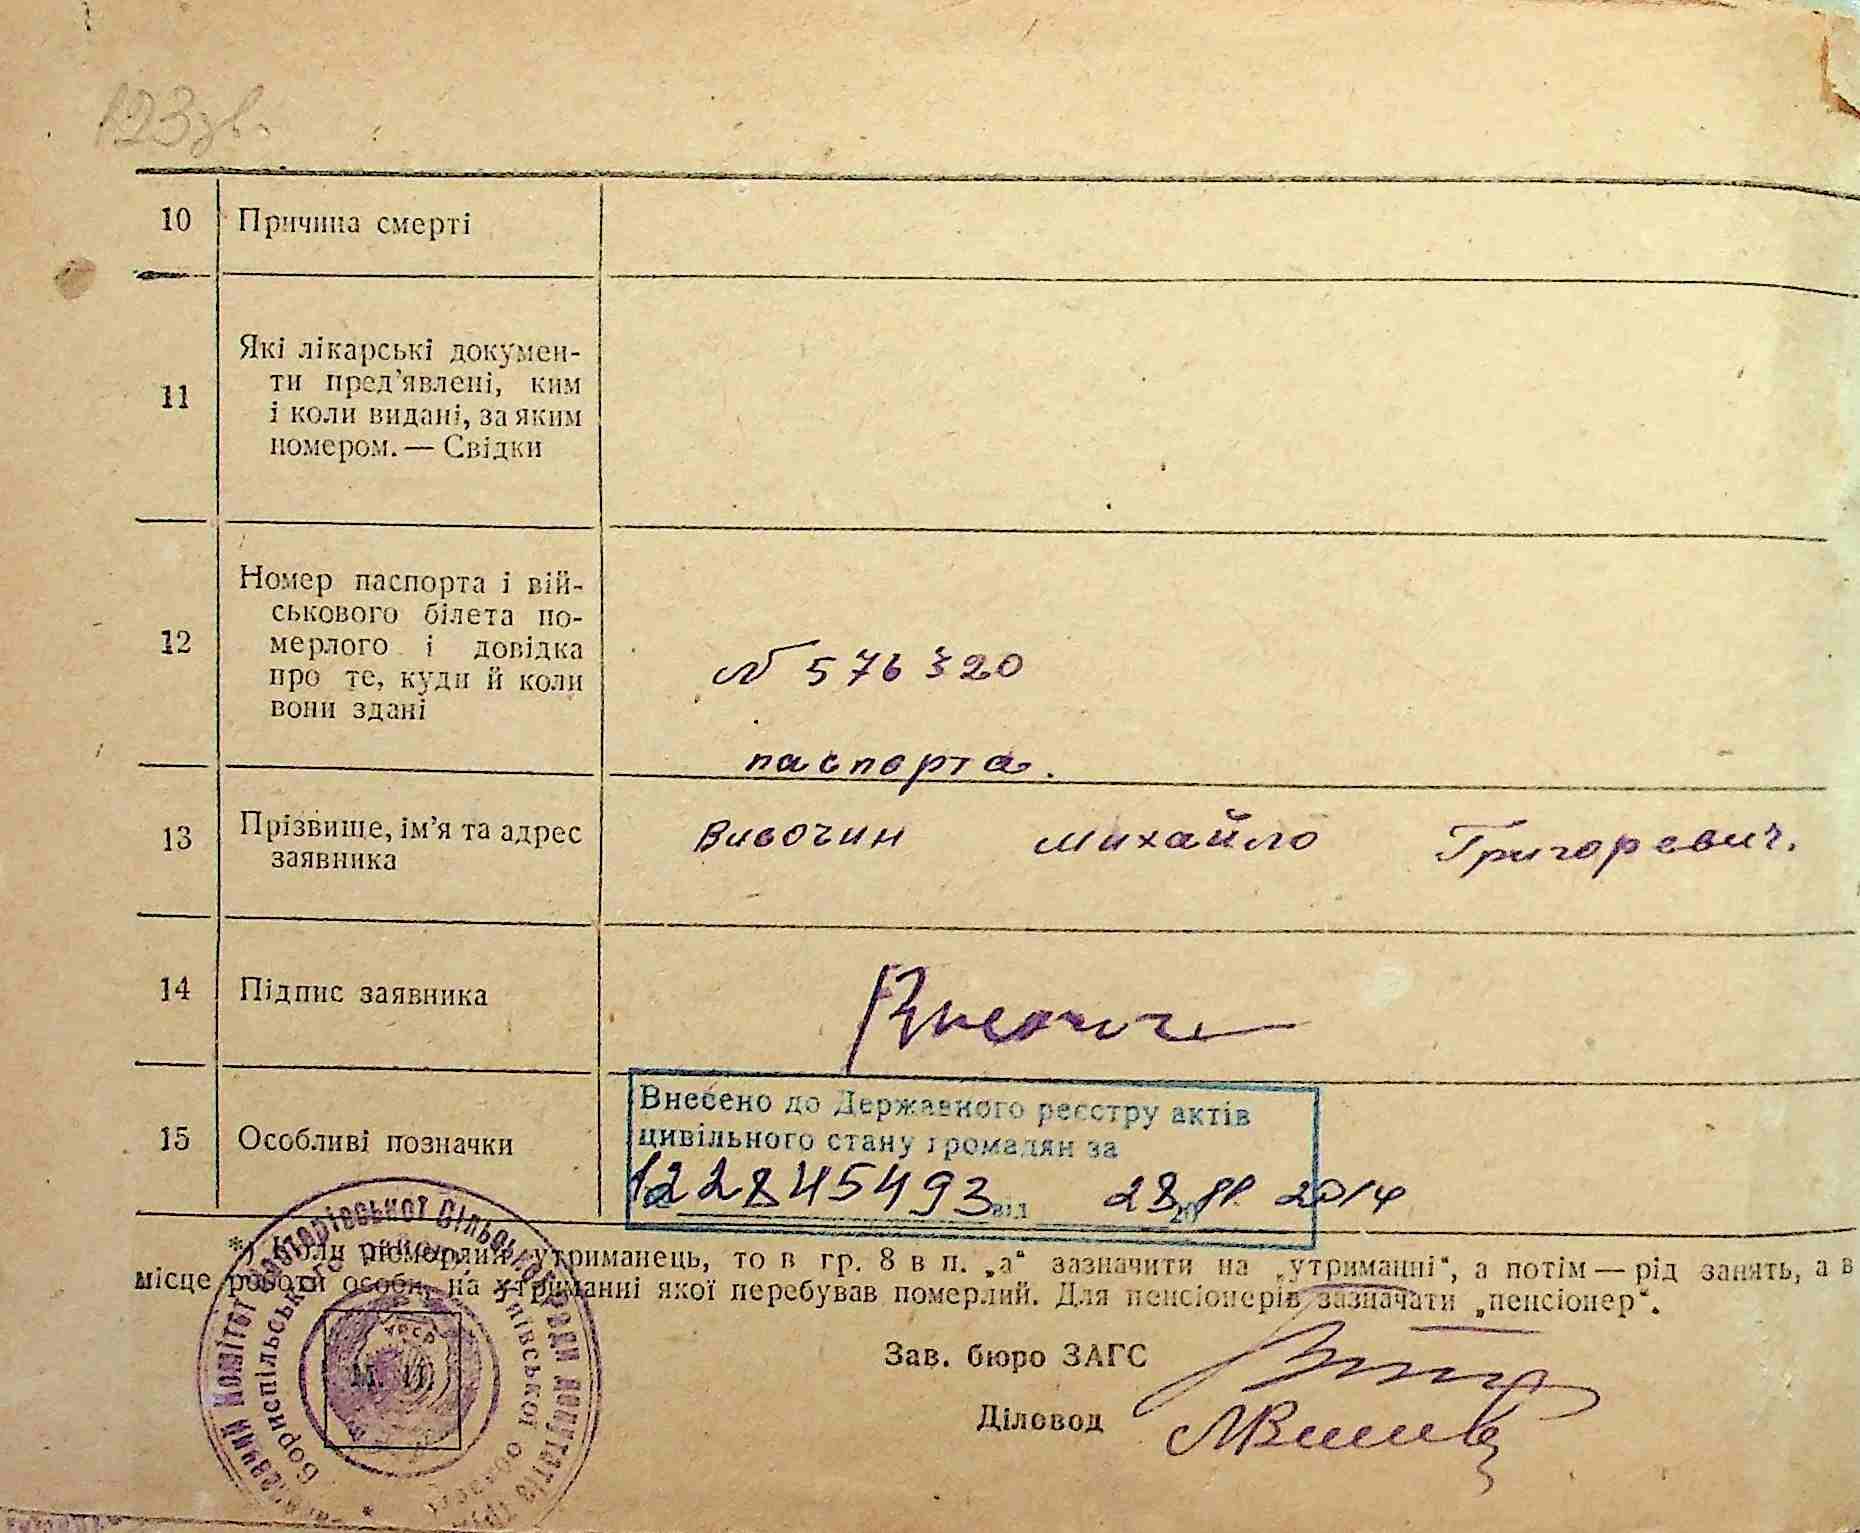 123 зв.
10 Причина смерті
11 Які лікарські докумен-
ти пред'явлені, ким
і коли видані, за яким
номером. — Свідки
12 Номер паспорта і вій-
ськового білета по-
мерлого і довідка
про те, куди й коли
вони здані
№ 576320
паспорта.
13 Прізвище, ім'я та адрес
заявника
Вивочин Михайло Григоревич.
14 Підпис заявника
15 Особливі позначки
Внесено до Державного реєстру актів
цивільного стану громадян за
122845493 від 28 2014
*) Коли померлий утриманець, то в гр. 8 в п. „а“ зазначити на „утриманні“, а потім — рід занять, а в
місце роботи особи, на утриманні якої перебував померлий. Для пенсіонерів зазначати „пенсіонер“.
Зав. бюро ЗАГС
Діловод
М. П.
УРСР
Комітет сільської Ради депутатів
Бориспільського району Київської області